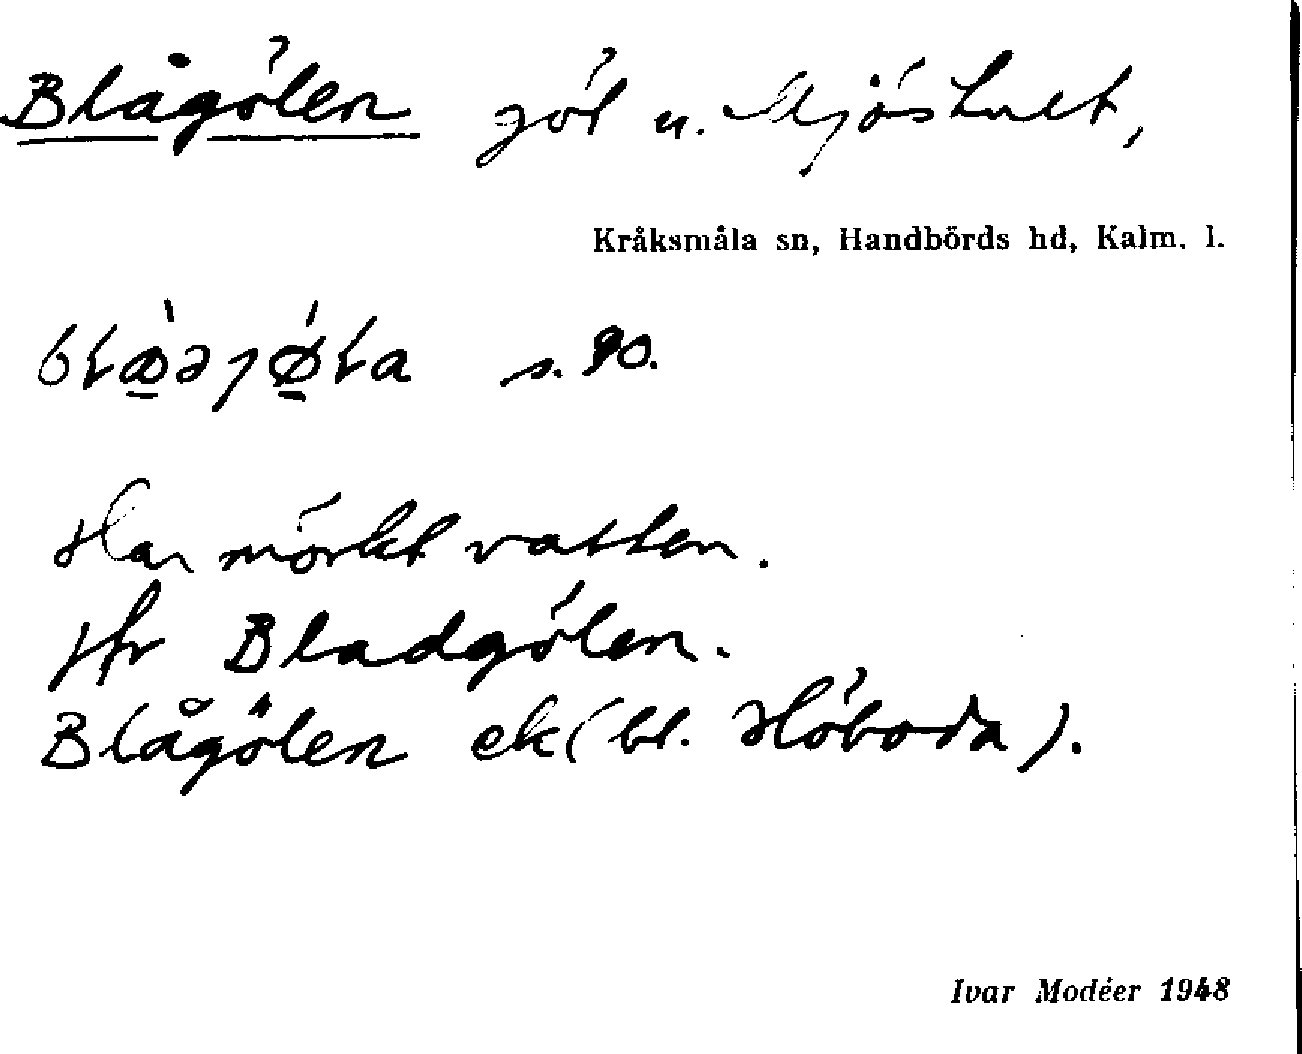 Blågölen göl u. Mjöshult,
Kråksmåla sn, Handbörds hd, Kalm. l.
s. 90.
Har mörkt vatten.
Jfr Bladgölen.
Blågölen ek (bl. Höboda).
Ivar Modéer 1948